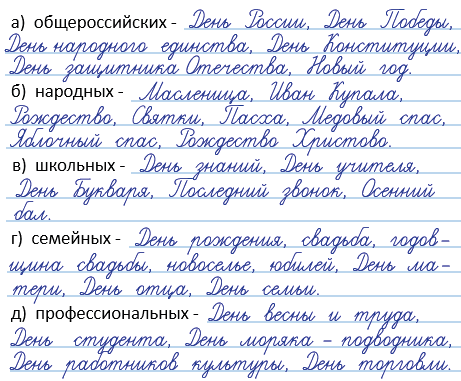 а) общероссийских - День России, День Победы,
День народного единства, День Конституции,
День защитника Отечества, Новый год.
б) народных - Масленица, Иван Купала,
Рождество, Святки, Пасха, Медовый спас,
Яблочный спас, Рождество Христово.
в) школьных - День знаний, День учителя,
День Букваря, Последний звонок, Осенний
бал.
г) семейных - День рождения, свадьба, годов-
щина свадьбы, новоселье, юбилей, День ма-
тери, День отца, День семьи.
д) профессиональных - День весны и труда,
День студента, День моряка - подводника,
День работников культуры, День торговли.